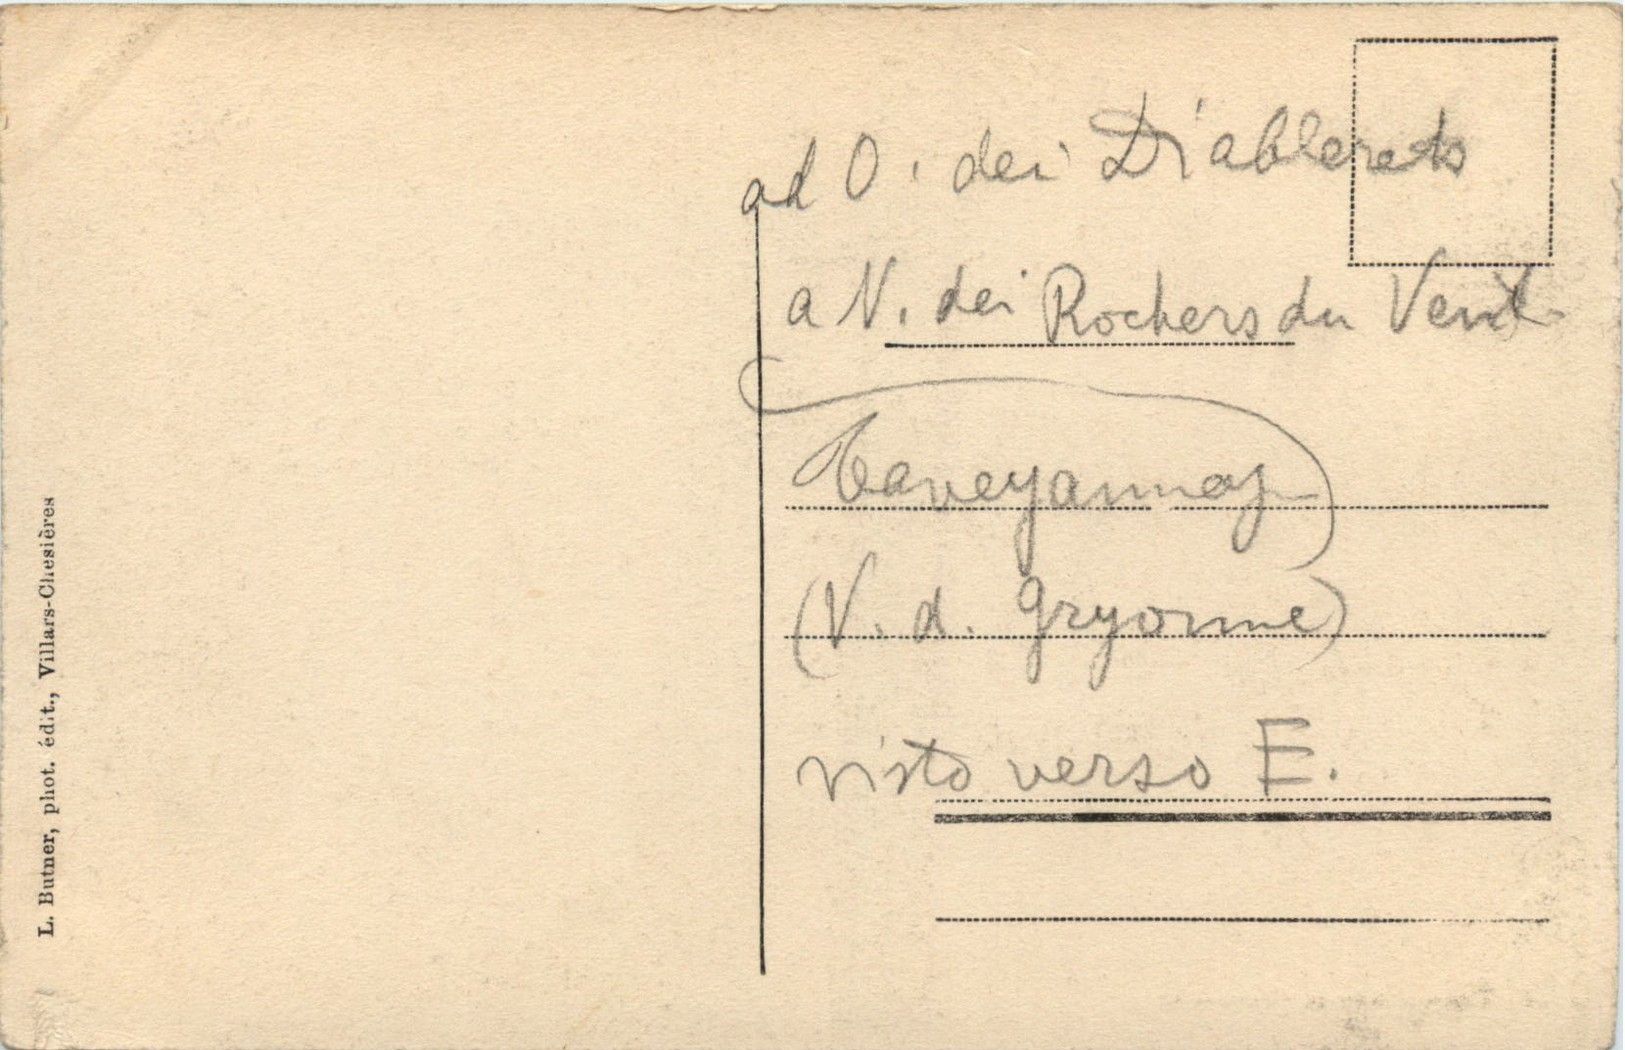 ad O. dei Diablerets
a N. dei Rochers du Vent
Taveyannaz
(V. d. Gryonne)
visto verso E.
L. Butner, phot. édit., Villars-Chesières